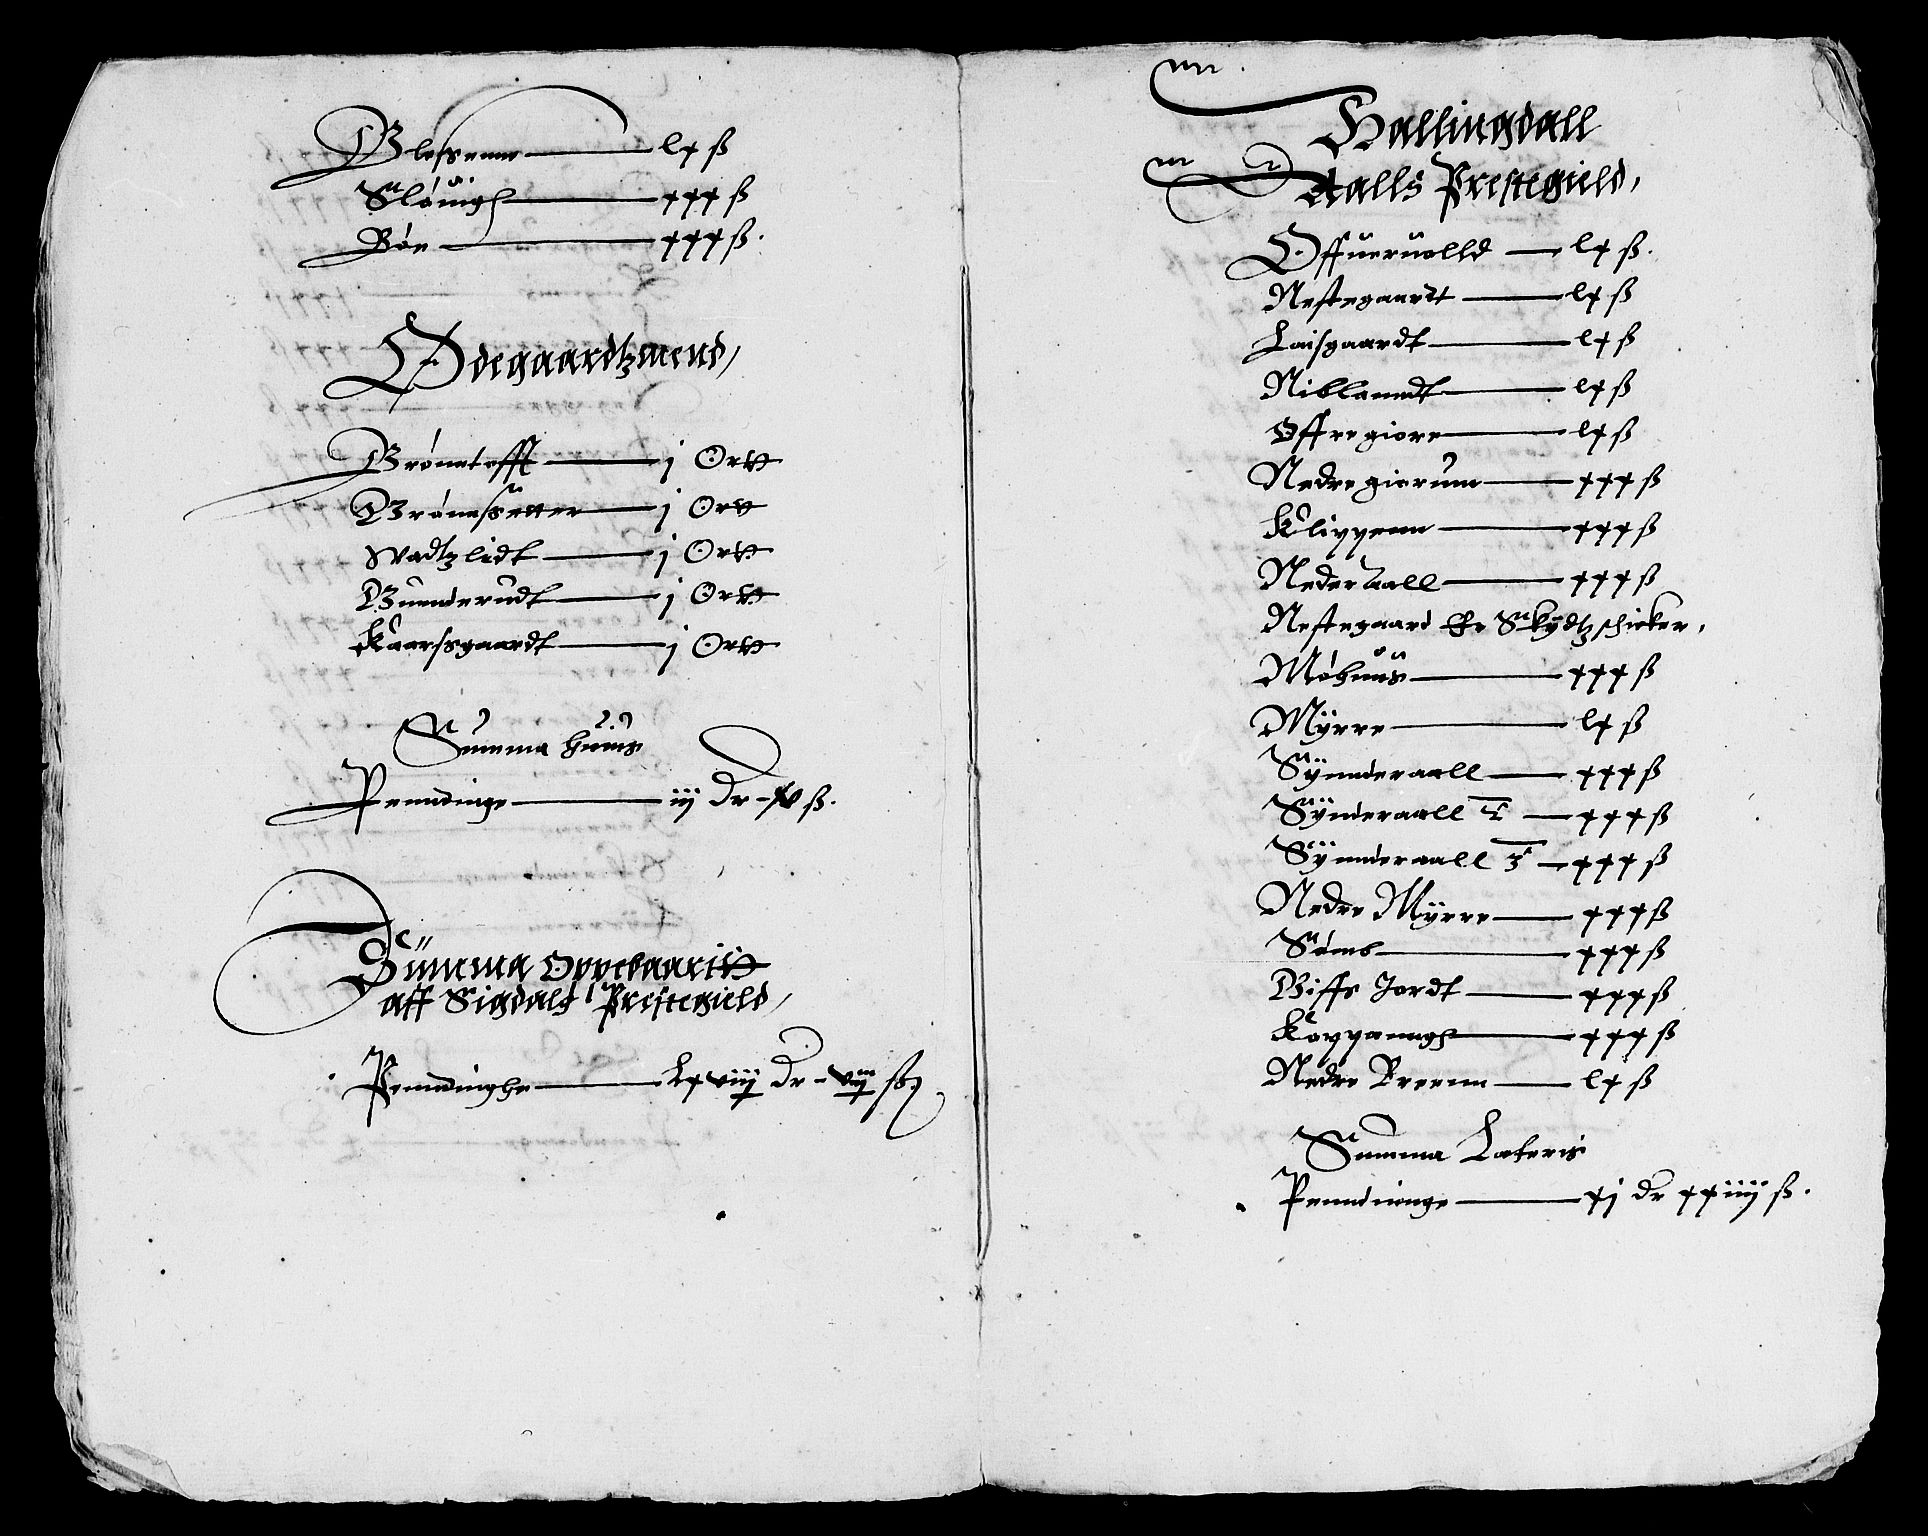 Blessenn — lx ß
Sløuigh — xxx ß
Bøe — xxx ß.
Ødegaardtzmend,
Brønntofft — j Ortt
Brønnssetter — j Ort
Wadtzlidt — j Ortt
Bunnderudt — j Ortt
Kaarssgaardt — j Ortt
Summa huius
Penndinge — iij dr - ß.
Summa Oppebaaritt
aff Sigdals Prestegield,
Penndinghe — Lxviij dr - viij ß
Hallingdall
Aalls Prestegield,
Øffueruolld — lx ß.
Nestegaardt — lx ß
Laisgaardt — lx ß
Niblanndt — lx ß
Øffregiore — lx ß
Nedregiorum — xxx ß
Klippenn — xxx ß
Nederaall — xxx ß
Nestegaard Er Skydtzschicker,
Møhuus — xxx ß
Myrre — lx ß
Synnderaall — xxx ß
Synderaall 2 — xxx ß
Synnderaall 3 — xxx ß
Nedre Myrre — xxx ß
Sømb — xxx ß
Biffs Jordt — xxx ß
Koppanngh — xxx ß
Nedre Breenn — lx ß
Summa Lateris
Penndinnge — xj dr xxiiij ß.